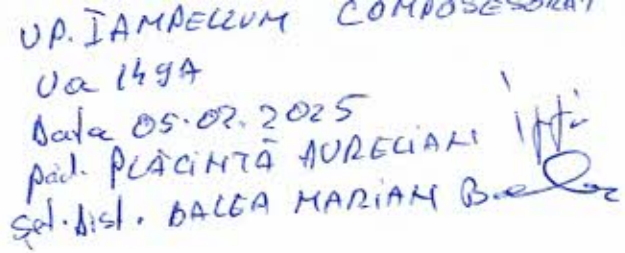 UP. IAMPELLUM COMPOSESORAT
Ua 149A
Data 05.02.2025
păd. PLĂCINTĂ AURELIAN
Șef. dist. BALEA MARIAN